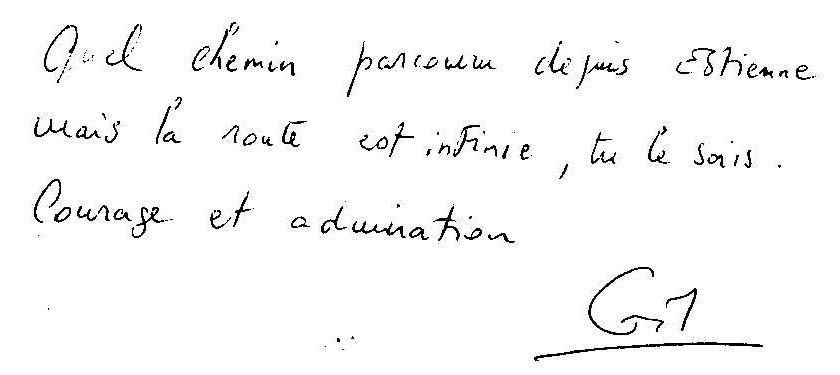 Quel chemin parcouru depuis Estienne
mais la route est infinie, tu le sais.
Courage et admiration